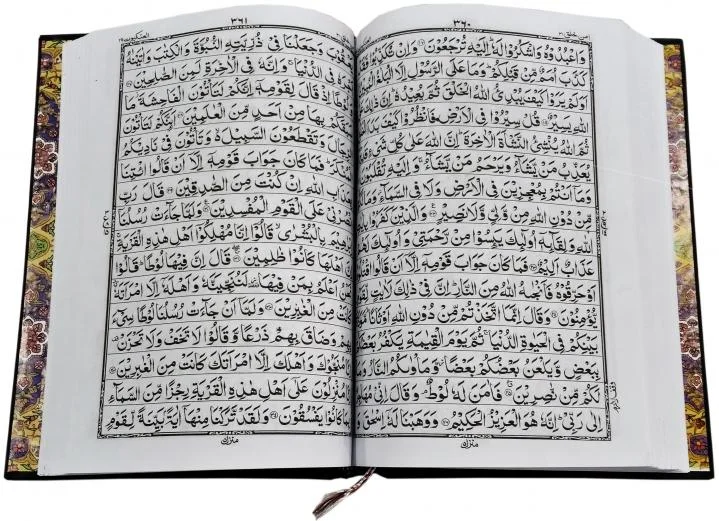 ٣٦٠
وَاعْبُدُوْهُ وَاشْكُرُوْا لَهٗ اِلَيْهِ تُرْجَعُوْنَ وَاِنْ تُكَذِّبُوْا
كَذَّبَ اُمَمٌ مِّنْ قَبْلِكُمْ وَمَا عَلَى الرَّسُوْلِ اِلَّا الْبَلٰغُ
اَوَلَمْ يَرَوْا كَيْفَ يُبْدِئُ اللّٰهُ الْخَلْقَ ثُمَّ يُعِيْدُهٗ اِنَّ
اللّٰهِ يَسِيْرٌ قُلْ سِيْرُوْا فِى الْاَرْضِ فَانْظُرُوْا كَيْفَ بَدَاَ
اللّٰهُ يُنْشِئُ النَّشْاَةَ الْاٰخِرَةَ اِنَّ اللّٰهَ عَلٰى كُلِّ شَىْءٍ
يُعَذِّبُ مَنْ يَّشَآءُ وَيَرْحَمُ مَنْ يَّشَآءُ وَاِلَيْهِ تُقْلَبُوْنَ
وَمَآ اَنْتُمْ بِمُعْجِزِيْنَ فِى الْاَرْضِ وَلَا فِى السَّمَآءِ وَمَا
مِّنْ دُوْنِ اللّٰهِ مِنْ وَّلِىٍّ وَّلَا نَصِيْرٍ وَالَّذِيْنَ كَفَرُوْا
اللّٰهِ وَلِقَآئِهٖٓ اُولٰٓئِكَ يَئِسُوْا مِنْ رَّحْمَتِىْ وَاُولٰٓئِكَ
عَذَابٌ اَلِيْمٌ فَمَا كَانَ جَوَابَ قَوْمِهٖٓ اِلَّآ اَنْ قَالُوا
اَوْ حَرِّقُوْهُ فَاَنْجٰىهُ اللّٰهُ مِنَ النَّارِ اِنَّ فِىْ ذٰلِكَ لَاٰيٰتٍ لِّقَوْمٍ
يُّؤْمِنُوْنَ وَقَالَ اِنَّمَا اتَّخَذْتُمْ مِّنْ دُوْنِ اللّٰهِ اَوْثَانًا مَّوَدَّةَ
بَيْنِكُمْ فِى الْحَيٰوةِ الدُّنْيَا ثُمَّ يَوْمَ الْقِيٰمَةِ يَكْفُرُ بَعْضُكُمْ
بِبَعْضٍ وَّيَلْعَنُ بَعْضُكُمْ بَعْضًا وَّمَاْوٰىكُمُ النَّارُ وَمَا
لَكُمْ مِّنْ نّٰصِرِيْنَ فَاٰمَنَ لَهٗ لُوْطٌ وَقَالَ اِنِّىْ مُهَاجِرٌ
اِلٰى رَبِّىْ اِنَّهٗ هُوَ الْعَزِيْزُ الْحَكِيْمُ وَوَهَبْنَا لَهٗٓ اِسْحٰقَ وَ
منزل
٣٦١
العنكبوت ٢٩
وَجَعَلْنَا فِىْ ذُرِّيَّتِهِ النُّبُوَّةَ وَالْكِتٰبَ وَاٰتَيْنٰهُ
فِى الدُّنْيَا وَاِنَّهٗ فِى الْاٰخِرَةِ لَمِنَ الصّٰلِحِيْنَ
اِذْ قَالَ لِقَوْمِهٖٓ اِنَّكُمْ لَتَاْتُوْنَ الْفَاحِشَةَ مَا
بِهَا مِنْ اَحَدٍ مِّنَ الْعٰلَمِيْنَ اَئِنَّكُمْ لَتَاْتُوْنَ
وَتَقْطَعُوْنَ السَّبِيْلَ وَتَاْتُوْنَ فِىْ نَادِيْكُمُ
فَمَا كَانَ جَوَابَ قَوْمِهٖٓ اِلَّآ اَنْ قَالُوا ائْتِنَا
بِعَذَابِ اللّٰهِ اِنْ كُنْتَ مِنَ الصّٰدِقِيْنَ قَالَ رَبِّ
انْصُرْنِىْ عَلَى الْقَوْمِ الْمُفْسِدِيْنَ وَلَمَّا جَآءَتْ رُسُلُنَآ
اِبْرٰهِيْمَ بِالْبُشْرٰى قَالُوْٓا اِنَّا مُهْلِكُوْٓا اَهْلِ هٰذِهِ الْقَرْيَةِ
اِنَّ اَهْلَهَا كَانُوْا ظٰلِمِيْنَ قَالَ اِنَّ فِيْهَا لُوْطًا قَالُوْا
نَحْنُ اَعْلَمُ بِمَنْ فِيْهَا لَنُنَجِّيَنَّهٗ وَاَهْلَهٗٓ اِلَّا امْرَاَتَهٗ
كَانَتْ مِنَ الْغٰبِرِيْنَ وَلَمَّآ اَنْ جَآءَتْ رُسُلُنَا لُوْطًا سِىْٓءَ
بِهِمْ وَضَاقَ بِهِمْ ذَرْعًا وَّقَالُوْا لَا تَخَفْ وَلَا تَحْزَنْ
اِنَّا مُنَجُّوْكَ وَاَهْلَكَ اِلَّا امْرَاَتَكَ كَانَتْ مِنَ الْغٰبِرِيْنَ
اِنَّا مُنْزِلُوْنَ عَلٰٓى اَهْلِ هٰذِهِ الْقَرْيَةِ رِجْزًا مِّنَ السَّمَآءِ
بِمَا كَانُوْا يَفْسُقُوْنَ وَلَقَدْ تَّرَكْنَا مِنْهَآ اٰيَةً بَيِّنَةً لِّقَوْمٍ
منزل